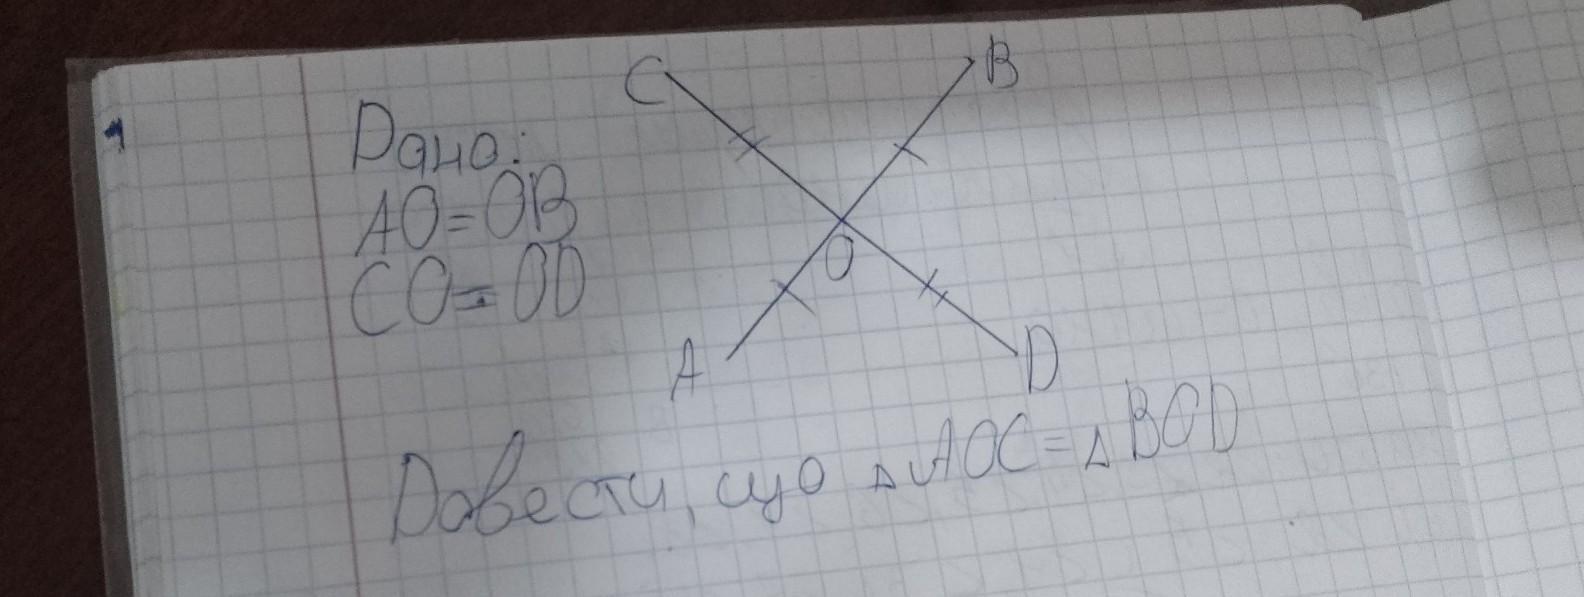 C
B
Дано:
AO=OB
CO=OD
O
A
D
Довести, що △AOC=△BOD